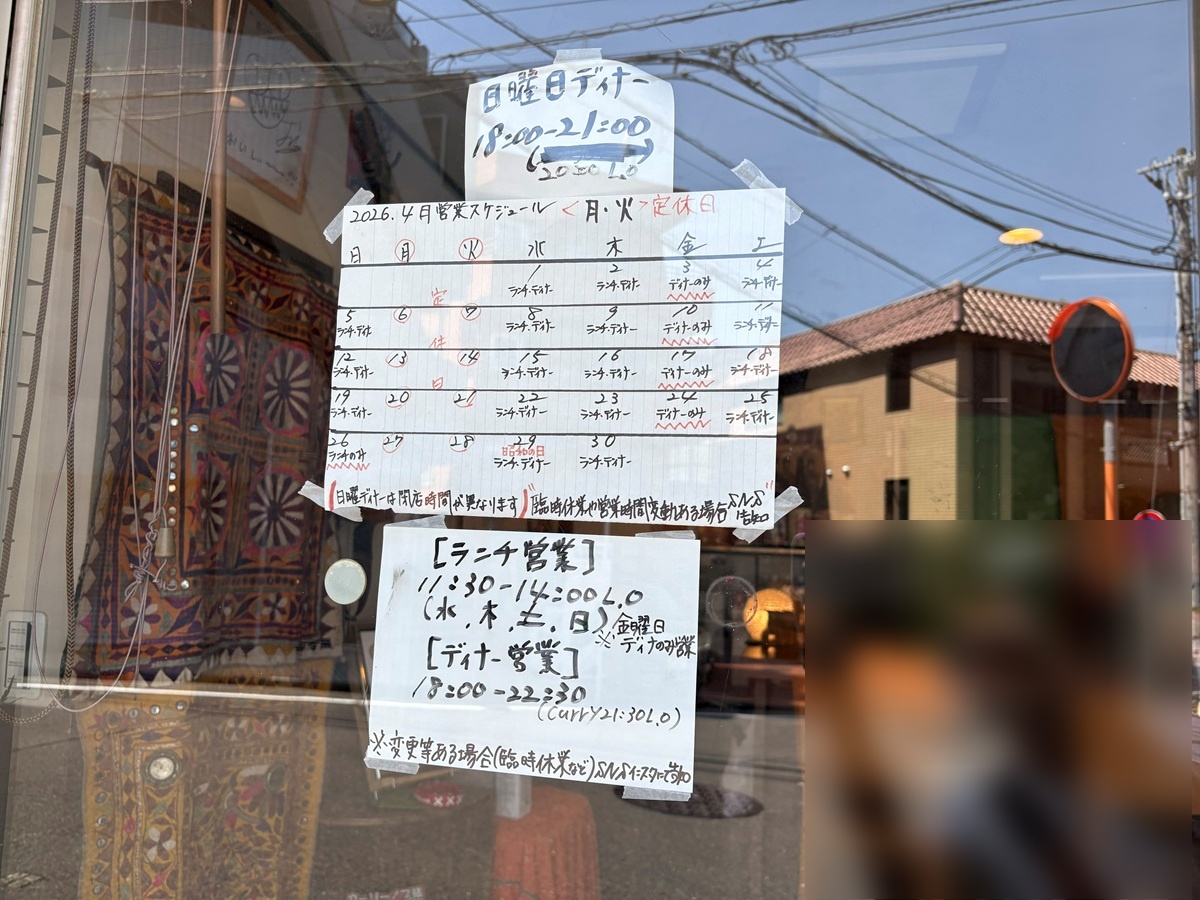 日曜日ディナー
18:00-21:00
(2030 L.O
2026.4月営業スケジュール <月・火>定休日
日 月 火 水 木 金 土
1 2 3 4
ランチ・ディナー ランチ・ディナー ディナーのみ ランチ・ディナー
定
5 6 7 8 9 10 11
ランチ・ディナー ランチ・ディナー ランチ・ディナー ディナーのみ ランチ・ディナー
休
12 13 14 15 16 17 18
ランチ・ディナー ランチ・ディナー ランチ・ディナー ディナーのみ ランチ・ディナー
日
19 20 21 22 23 24 25
ランチ・ディナー ランチ・ディナー ランチ・ディナー ディナーのみ ランチ・ディナー
26 27 28 29 30
昭和の日
ランチのみ ランチ・ディナー ランチ・ディナー
(日曜ディナーは閉店時間が異なります) "臨時休業や営業時間変動ある場合SNS告知"
[ランチ営業]
11:30-14:00 L.O
(水.木.土.日)
※金曜日
ディナのみ営業
[ディナー営業]
18:00-22:30
(Curry21:30L.O)
※変更等ある場合(臨時休業など)SNSインスタにて告知